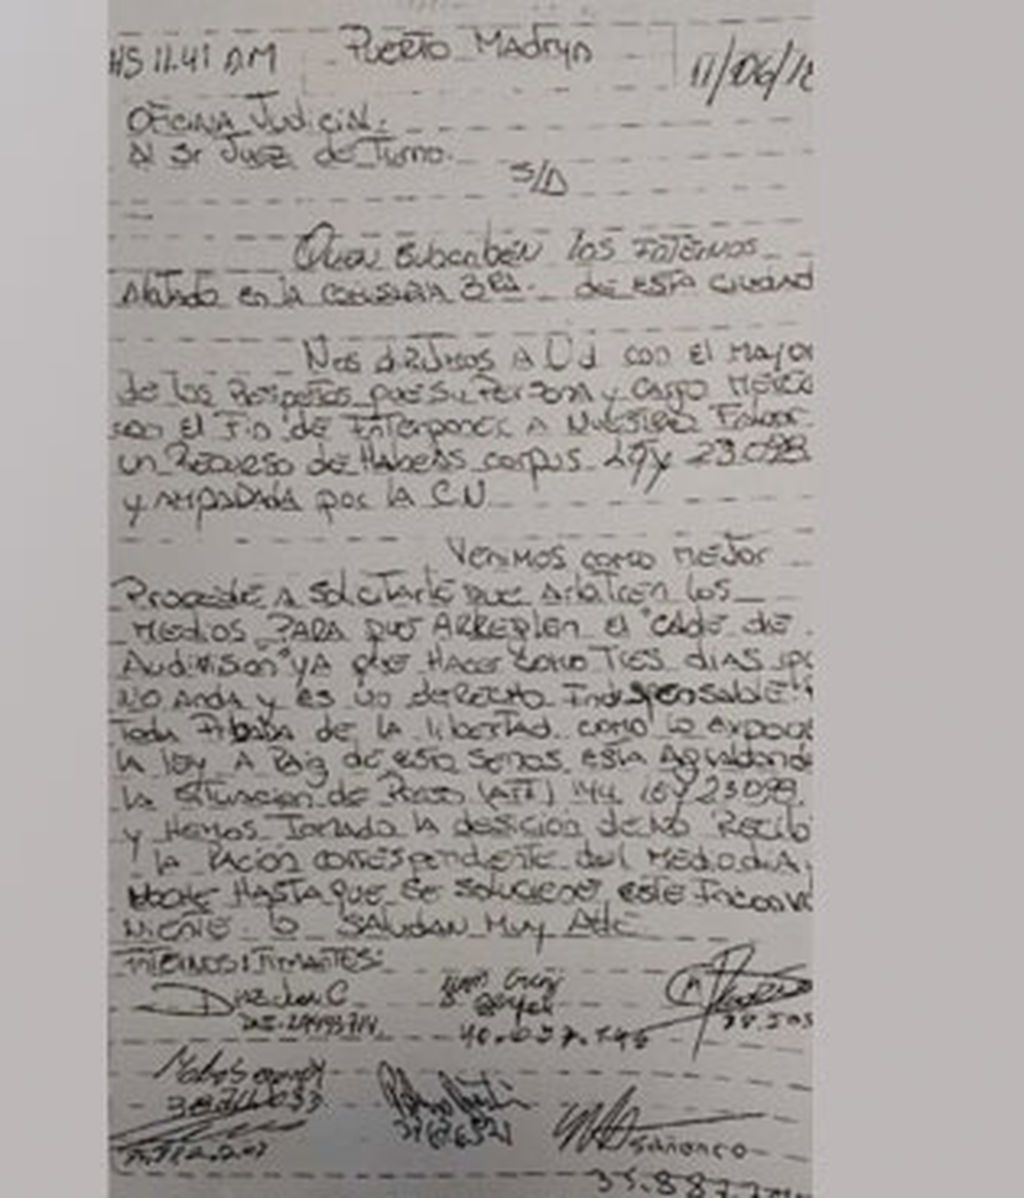 HS 11.41 AM Puerto Madryn 11/06/18
OFICINA Judicial:
Al Sr Juez de Turno.
S/D
Quien subscriben los internos
Alojado en la comisaria 3ra. de esta ciudad
Nos dirijimos A Ud con el Mayor
de los Respetos que su Persona y cargo Merece
con El Fin de Interponer A Nuestro Fabor
un Recurso de Habeas corpus Ley 23.098
y AMPARADA por la C.N
Venimos como mejor
Procede A solicitarle que Arbitren los
Medios PARA que ARREGLEN El "CABLE de
Audivision" YA que HACER como Tres dias que
NO Anda y es un derecho Indispensable
Toda Pribada de la libertad como lo expone
la ley A Raiz de esto se nos esta Agrabando
la situacion de Preso (ART) 144 ley 23.098.
y Hemos Tomado la desicion de No Recib
la Racion correspondente del Mediodia,
Noche HASTA Que se solucione este Inconve
niente. SAludan Muy Atte
INTERNOS FIRMANTES:
Diaz
40.037.146
38.
Sañanco
35.887